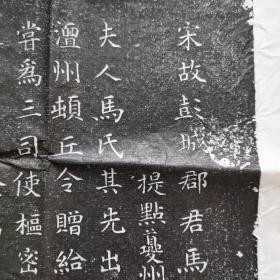 宋故彭城郡君馬
提點夔州
夫人馬氏其先出
澶州頓丘令贈給
嘗爲三司使樞密